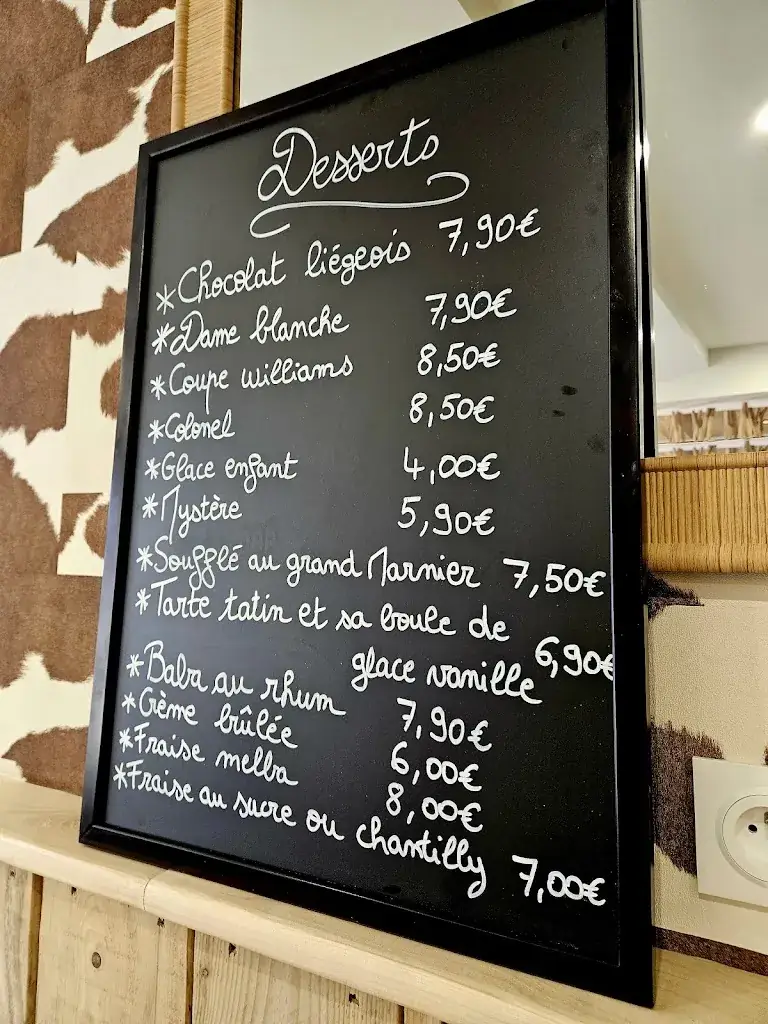 Desserts
*Chocolat liégeois 7,90€
*Dame blanche 7,90€
*Coupe williams 8,50€
*Colonel 8,50€
*Glace enfant 4,00€
*Mystère 5,90€
*Soufflé au grand Marnier 7,50€
*Tarte tatin et sa boule de
glace vanille 6,90€
*Baba au rhum 7,90€
*Crème brûlée 6,00€
*Fraise melba 8,00€
*Fraise au sucre ou chantilly 7,00€